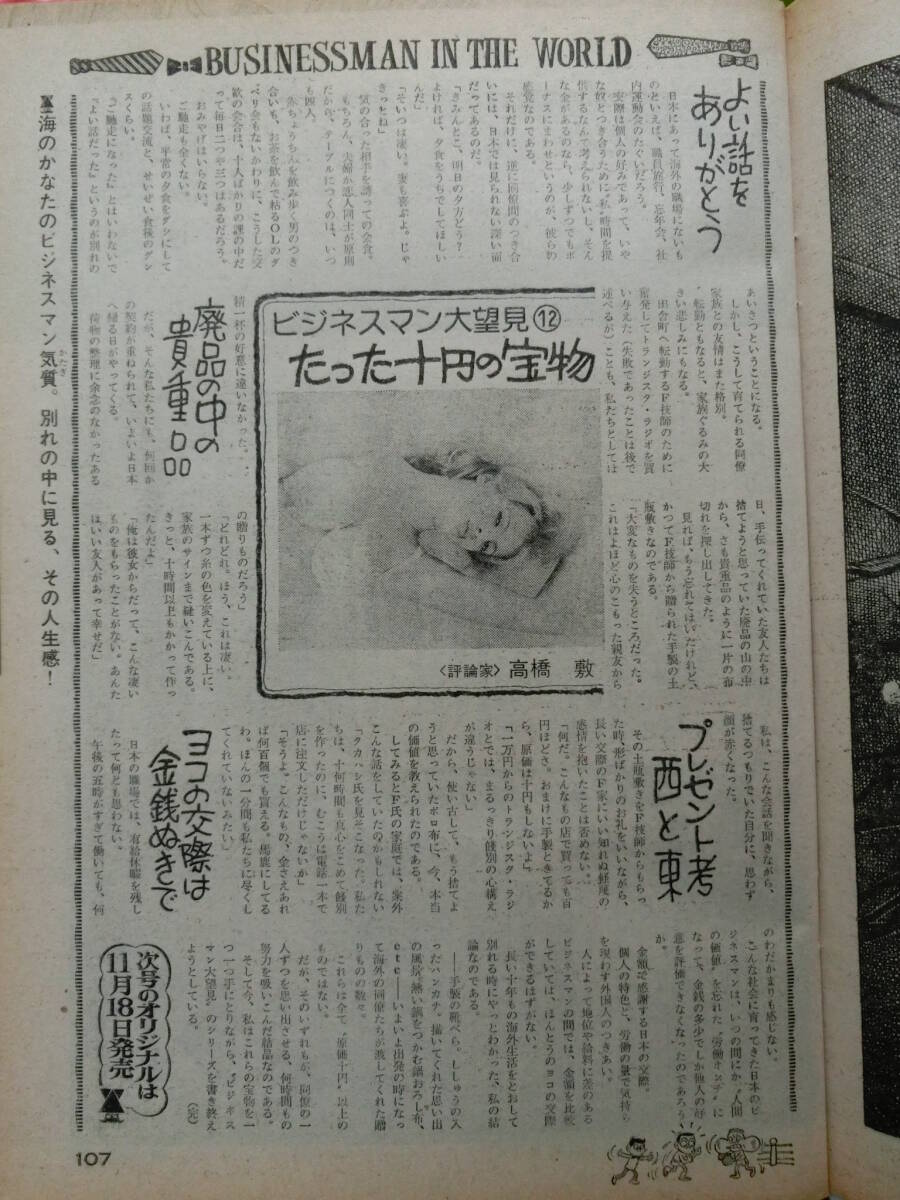 BUSINESSMAN IN THE WORLD
海のかなたのビジネスマン気質。別れの中に見る、その人生感!
かたぎ
よい話を
ありがとう
日本にあって海外の職場にないも
のといえば、職員旅行、忘年会、社
内運動会のたぐいだろう。
実際は個人の好みであって、いや
な奴とつき合うために、時間を提
供するなんて考えられないし、そん
な金があるのなら、少しずつでもボ
ーナスにまわせというのが、彼らの
感覚なのである。
それだけに、逆に同僚間のつき合
いには、日本では見られない深い面
だってあるのだ。
「きみんとこ、明日の夕方どう?
よければ、夕食をうちでしてほしい
んだ」
「そいつは凄い。妻も喜ぶよ。じゃ
きっとね」
気の合った相手を誘っての会食。
もちろん、夫婦か恋人同士が原則
だから、テーブルにつくのは、いつ
も四人。
赤ちょうちんを飲み歩く男のつき
合いも、お茶を飲んで粘るOLのダ
ベリ会もないかわりに、こうした交
歓の会合は、十人ばかりの課の中だ
って毎日二つや三つはあるだろう。
おみやげはいらない。
ご馳走も全くない。
いわば、平常の夕食をダシにして
の話題交流と、せいぜい食後のダン
スくらい。
「ご馳走になった」とはいわないで
「よい話だった」というのが別れの
あいさつということになる。
しかし、こうして育てられる同僚
家族との友情はまた格別。
転勤ともなると、家族ぐるみの大
きい悲しみにもなる。
田舎町へ転勤するF技師のために
奮発してトランジスタ・ラジオを買
い与えた(失敗であったことは後で
述べるが)ことも、私たちとしては
ビジネスマン大望見⑫
たった十円の宝物
〈評論家〉高橋 敷
精一杯の好意に違いなかった。
廃品の中の
貴重品
だが、そんな私たちにも、何回か
の契約が重ねられて、いよいよ日本
へ帰る日がやってくる。
荷物の整理に余念のなかったある
日、手伝ってくれていた友人たちは
捨てようと思っていた廃品の山の中
から、さも貴重品のように一片の布
切れを探し出してきた。
見れば、もう忘れてはいたけれど、
かつてF技師から贈られた手製の土
瓶敷きなのである。
「大変なものを失うところだった。
これはよほど心のこもった親友から
の贈りものだろう」
「どれどれ。ほう、これは凄い。
一本ずつ糸の色を変えている上に、
家族のサインまで縫いこんである。
きっと、十時間以上もかかって作っ
たんだよ」
「俺は彼女からだって、こんな凄い
ものをもらったことがない。あんた
はいい友人があって幸せだ」
私は、こんな会話を聞きながら、
捨てるつもりでいた自分に、思わず
顔が赤くなった。
プレゼント考
西と東
その土瓶敷きをF技師からもらっ
た時、形ばかりのお礼をいいながら、
長い交際のF家にいい知れぬ軽蔑の
感情を抱いたことは否めない。
「何だ。こんなもの店で買っても百
円ほどさ。おまけに手製ときてるか
ら、原価は十円もしないよ」
「一万円からのトランジスタ・ラジ
オとでは、まるっきり餞別の心構え
が違うわ」
だから、使い古して、もう捨てよ
うと思っていたボロ布に、今、本当
の価値を教えられたのである。
してみるとF氏の家庭では、案外
こんな話をしていたのかもしれない
「タカハシ氏を見そこなった。私た
ちは、十何時間も真心をこめて餞別
を作ったのに、むこうは電話一本で
店に注文しただけじゃないか」
「そうよ。こんなもの、金さえあれ
ば何百個でも買える。馬鹿にしてる
わ。ほんの一分間も私たちに尽くし
てくれていないみたい」
ヨコの交際は
金銭ぬきで
日本の職場では、有給休暇を残し
たって何とも思わない。
午後の五時がすぎて働いても、何
のわだかまりも感じない。
こんな社会に育ってきた日本のビ
ジネスマンは、いつの間にか、人間
の価値〟を忘れた〝労働オンチ〟に
なって、金銭の多少でしか他人の好
意を評価できなくなったのであろう
か。
金額で感謝する日本の交際。
個人の特色と、労働の量で気持ち
を現わす外国人のつきあい。
人によって地位や給料に差のある
ビジネスマンの間では、金額を比較
していては、ほんとうのヨコの交際
ができるはずがない。
長い十年もの海外生活をとおして
別れる時にやっとわかった、私の結
論なのである。
――手製の靴べら。ししゅうの入
ったハンカチ。描いてくれた思い出
の風景。熱い鍋をつかむ鍋おろし布、
etc――いよいよ出発の時になっ
て海外の同僚たちが渡してくれた贈
りものの数々。
これらは全て〝原価十円〟以上の
ものではない。
だが、そのいずれもが、同僚の一
人ずつを思い出させる、何時間もの
努力を吸いこんだ結晶なのである。
そして今、私はこれらの宝物を一
つ一つ手にとりながら、〝ビジネス
マン大望見〟のシリーズを書き終え
ようとしている。
(完)
次号のオリジナルは
11月18日発売
107